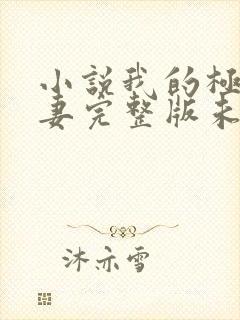 小說我的極
妻完整版未
沐亦雪